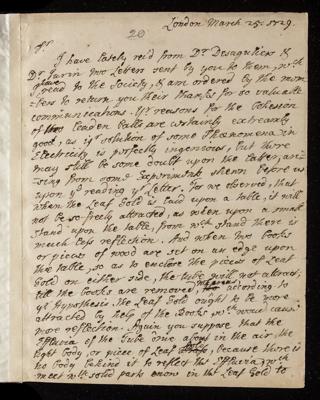 London March 25: 1729.
20
Sr.
I have lately rec'd from Dr. Desaguliers &
Dr. Jurin two Letters sent by you to them, wch
I have read to the Society, & am ordered by the mem
bers to return you their thanks for so valuable
communications. Yr reasons for the Cohesion
of two Leaden balls are certainly extreamly
good, as yr solution of some Phaenomena in
Electricity is perfectly ingenious, but there
may still be some doubt upon the latter, ari-
sing from some Experiments shewn before us
upon ye reading yr Letter. For we observed, that
when the Leaf Gold is laid upon a table, it will
not be so freely attracted, as when upon a small
stand upon the table, from wch stand there is
much less reflection. And when two books
or pieces of wood are set on an edge upon
the table, so as to enclose the pieces of Leaf
Gold on either side, the tube will not attract,
till the books are removed, whereas according to
yr Hypothesis the Leaf Gold ought to be more
attracted by help of the Books, wch woud cause
more reflection. Again you suppose that the
Effluvia of the Tube move about in the air, the
light body, or piece of Leaf because there is
no body behind it to reflect the Effluvia, wch
meet wth solid parts enow in the Leaf Gold to